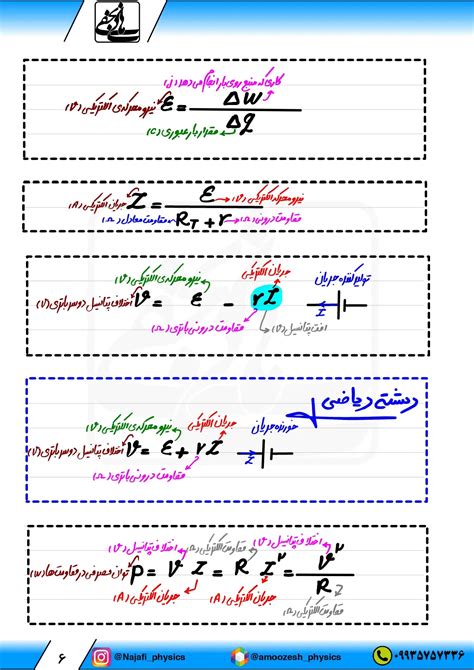 کاری که منبع روی بار انجام می‌دهد (J)
نیرو محرکه‌ی الکتریکی (V) ε = ΔW / Δq
مقدار بار عبوری (C)
جریان الکتریکی (A) I = ε / (R_T + r)
نیرو محرکه الکتریکی (V)
مقاومت معادل (Ω)
مقاومت درونی (Ω)
نیرو محرکه‌ی الکتریکی (V)
جریان الکتریکی
تولید کننده جریان
اختلاف پتانسیل دو سر باتری (V) V = ε - rI
I
مقاومت درونی باتری (Ω)
افت پتانسیل (V)
رشته ریاضی
نیرو محرکه‌ی الکتریکی (V)
جریان الکتریکی
جریان
اختلاف پتانسیل دو سر باتری (V) V = ε + rI
I
مقاومت درونی باتری (Ω)
اختلاف پتانسیل (V)
مقاومت الکتریکی (Ω)
اختلاف پتانسیل (V)
توان مصرفی در مقاومت‌ها (W) P = V I = R I² = V² / R
جریان الکتریکی (A)
جریان الکتریکی (A)
مقاومت الکتریکی (Ω)
۶
@Najafi_physics
@amoozesh_physics
۰۹۹۳۵۷۵۷۳۳۶